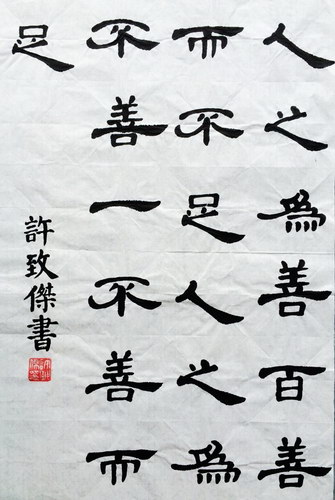 人之為善百善
而不足人之為
不善一不善而
足
許致傑書